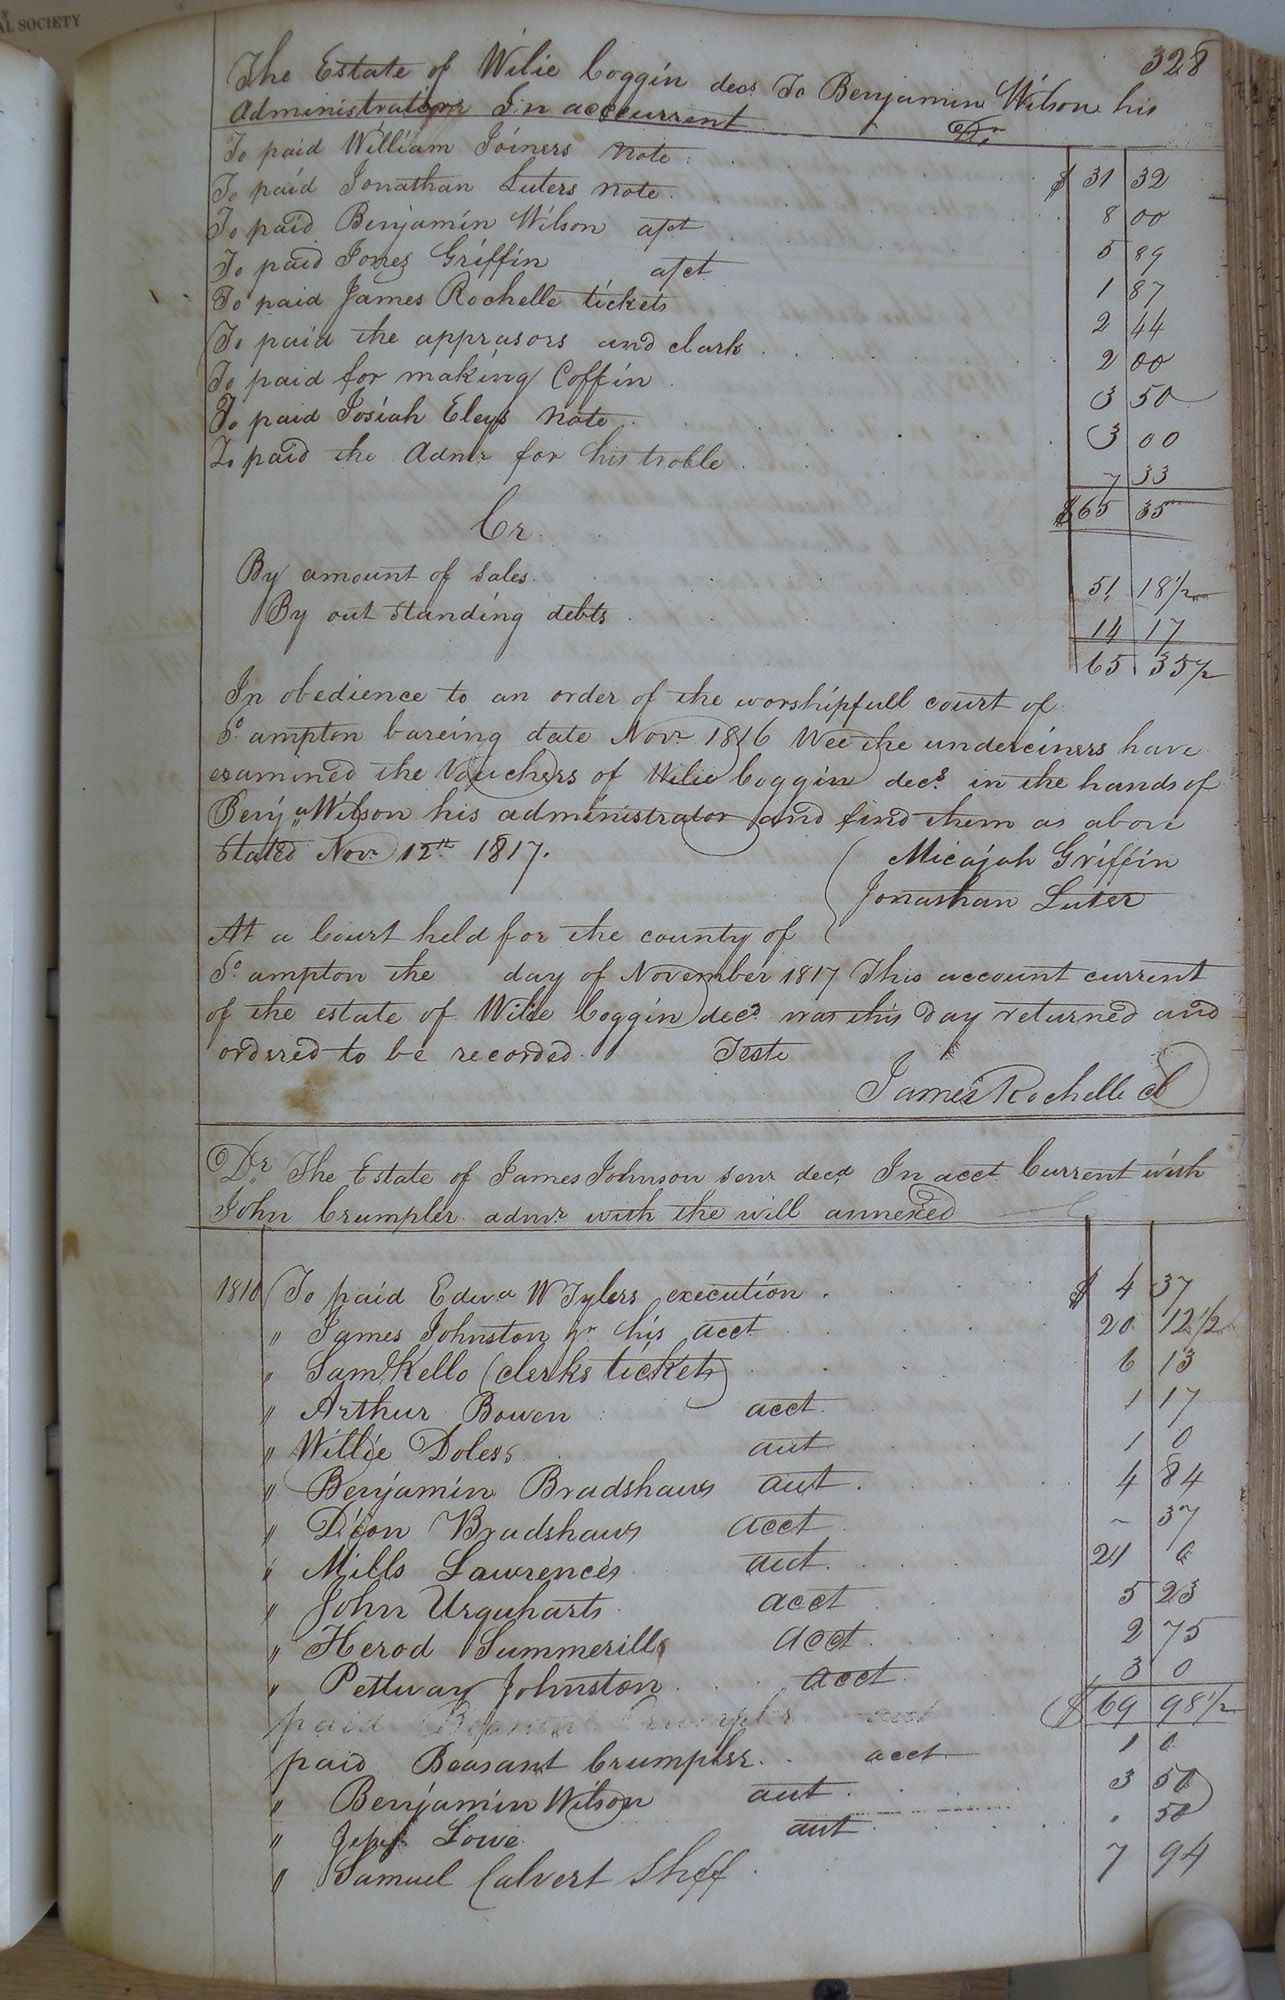 AL SOCIETY
328
The Estate of Wilie Coggin decs To Benjamin Wilson his
Administrator In acccurrent Dr
To paid William Joiners note $ 31 32
To paid Jonathan Luters note 8 00
To paid Benjamin Wilson a/ct 5 89
To paid Jones Griffin a/ct 1 87
To paid James Rochelle tickets 2 44
To paid the apprasors and clark 2 00
To paid for making Coffin 3 50
To paid Josiah Eleys note 3 00
To paid the Admr for his troble 7 33
$65 35
Cr
By amount of sales 51 18 1/2
By out standing debts 14 17
65 35 1/2
In obedience to an order of the worshipfull court of
So ampton bareing date Novr 1816 Wee the underciners have
examined the Vouchers of Wilie Coggin decs in the hands of
Benja Wilson his administrator and find them as above
Stated Novr 12th 1817.
Micajah Griffin
Jonathan Luter
At a Court held for the county of
So ampton the day of November 1817 This account current
of the estate of Wilie Coggin decd was this day returned and
ordered to be recorded. Teste
James Rochelle cl
Dr The Estate of James Johnson senr decd In acct Current with
John Crumpler admr with the will annexed
1810 To paid Edwd W Tylers execution $ 4 37
" James Johnston jr his acct 20 12 1/2
" Saml Kello (clerks tickets) 6 13
" Arthur Bowen acct 1 17
" Willie Doless acct 1 0
" Benjamin Bradshaws acct 4 84
" Dijon Bradshaws acct - 37
" Mills Lawrences acct 20 0
" John Urquharts acct 5 23
" Herod Summerills acct 2 75
" Pettway Johnston acct 3 0
$69 98 1/2
paid Beasant Crumpler acct 1 0
" Benjamin Wilson acct 3 50
" Lowe acct . 50
" Samuel Calvert Shff 7 94